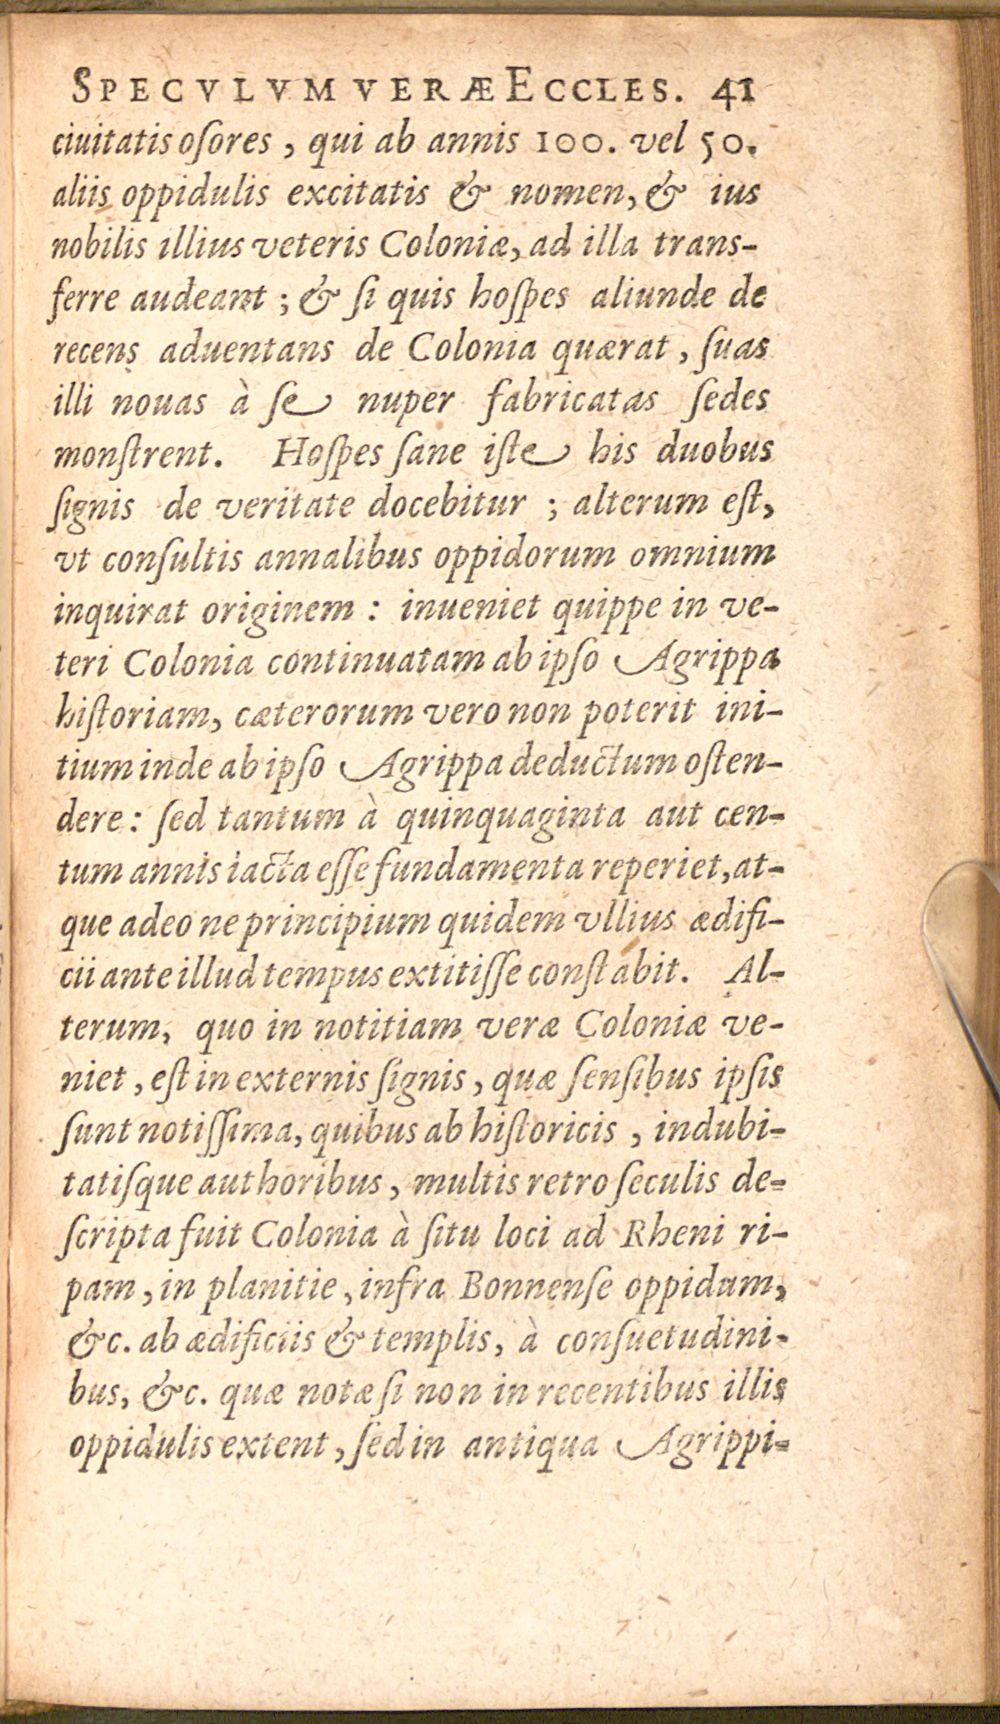 SPECVLVM VERÆ ECCLES. 41
ciuitatis oſores, qui ab annis 100. vel 50.
aliis oppidulis excitatis & nomen, & ius
nobilis illius veteris Coloniæ, ad illa trans-
ferre audeant ; & ſi quis hoſpes aliunde de
recens aduentans de Colonia quærat, ſuas
illi nouas à ſe nuper fabricatas ſedes
monſtrent. Hoſpes ſane iſte his duobus
ſignis de veritate docebitur ; alterum eſt,
vt conſultis annalibus oppidorum omnium
inquirat originem : inueniet quippe in ve-
teri Colonia continuatam ab ipſo Agrippa
hiſtoriam, cæterorum vero non poterit ini-
tium inde ab ipſo Agrippa deductum oſten-
dere: ſed tantum à quinquaginta aut cen-
tum annis iacta eſſe fundamenta reperiet, at-
que adeo ne principium quidem vllius ædifi-
cii ante illud tempus extitiſſe conſtabit. Al-
terum, quo in notitiam veræ Coloniæ ve-
niet, eſt in externis ſignis, quæ ſenſibus ipſis
ſunt notiſſima, quibus ab hiſtoricis, indubi-
tatiſque authoribus, multis retro ſeculis de-
ſcripta fuit Colonia à ſitu loci ad Rheni ri-
pam, in planitie, infra Bonnenſe oppidum,
&c. ab ædificiis & templis, à conſuetudini-
bus, &c. quæ notæ ſi non in recentibus illis
oppidulis extent, ſed in antiqua Agrippi-